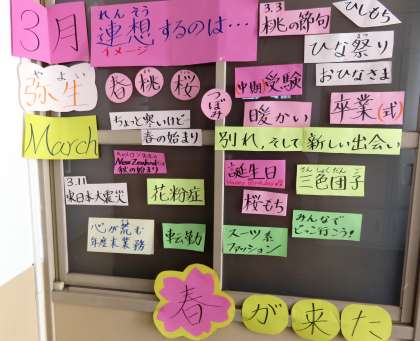 3月
れんそう
連想するのは…
イメージ
3.3
桃の節句
ひしもち
ひな祭り
おひなさま
やよい
弥生
春
桃
桜
つぼみ
中期受験
暖かい
卒業(式)
March
ちょっと寒いけど
春の始まり
別れ、そして新しい出会い
New Zealandは
秋の始まり
誕生日
Happy Birthday
さんしょくだんご
三色団子
3.11
東日本大震災
花粉症
桜もち
心が荒む
年度末業務
転勤
スーツ系
ファッション
みんなで
どこ行こう!
春が来た